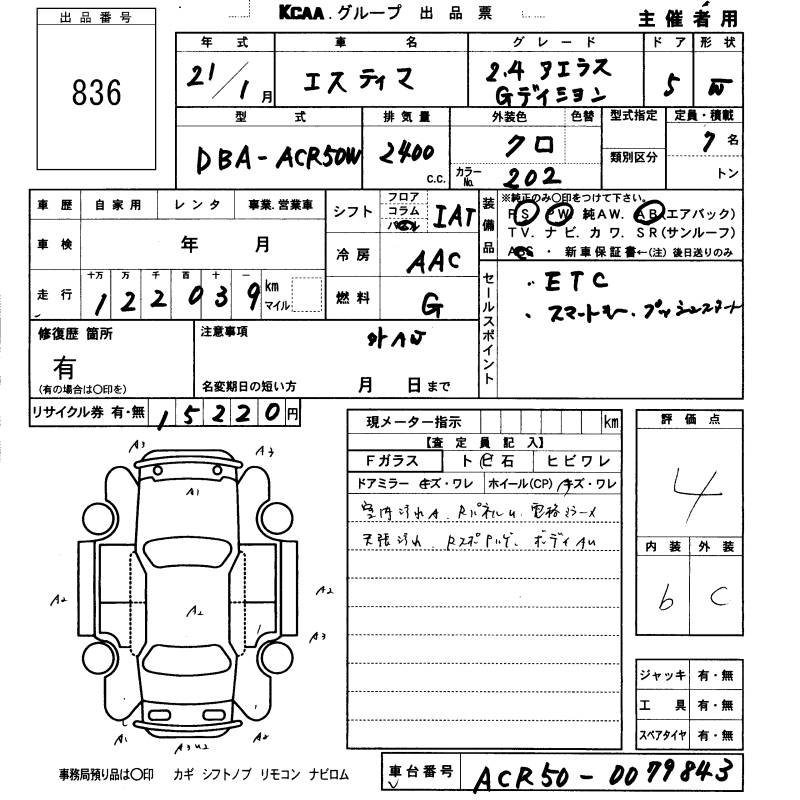 KCAA. グループ 出品票
主催者用
出品番号
836
年式 車名 グレード ドア 形状
21/1月 エスティマ 2.4 アエラス Gディション 5 W
型式 排気量 外装色 色替 型式指定 定員・積載
DBA-ACR50W 2400 c.c. クロ 類別区分 7名
カラーNo. 202 トン
車歴 自家用 レンタ 事業.営業車
車検 年 月
走行 十万 万 千 百 十 一 km マイル
122039
シフト フロア コラム IAT
冷房 AAC
燃料 G
装備品
※純正のみ〇印をつけて下さい。
PS PW 純AW. AB(エアバック)
TV. ナビ. カワ. SR(サンルーフ)
・ 新車保証書←(注) 後日送りのみ
セールスポイント
・ ETC
・ スマートキー. プッシュスタート
修復歴 箇所
有
(有の場合は〇印を)
注意事項
外AW
名変期日の短い方 月 日まで
リサイクル券 有・無 15220円
現メーター指示 km
【査定員記入】
Fガラス トビ石 ヒビワレ
ドアミラー キズ・ワレ ホイール(CP) キズ・ワレ
室内汚れA. RパネルU. 電格ミラー
天張汚れ.
評価点
4
内装 外装
b C
A3
A3
A1
A2
A2
A2
A3
A1
A3U2
A2
ジャッキ 有・無
工具 有・無
スペアタイヤ 有・無
事務局預り品は〇印 カギ シフトノブ リモコン ナビロム
車台番号 ACR50-0079843